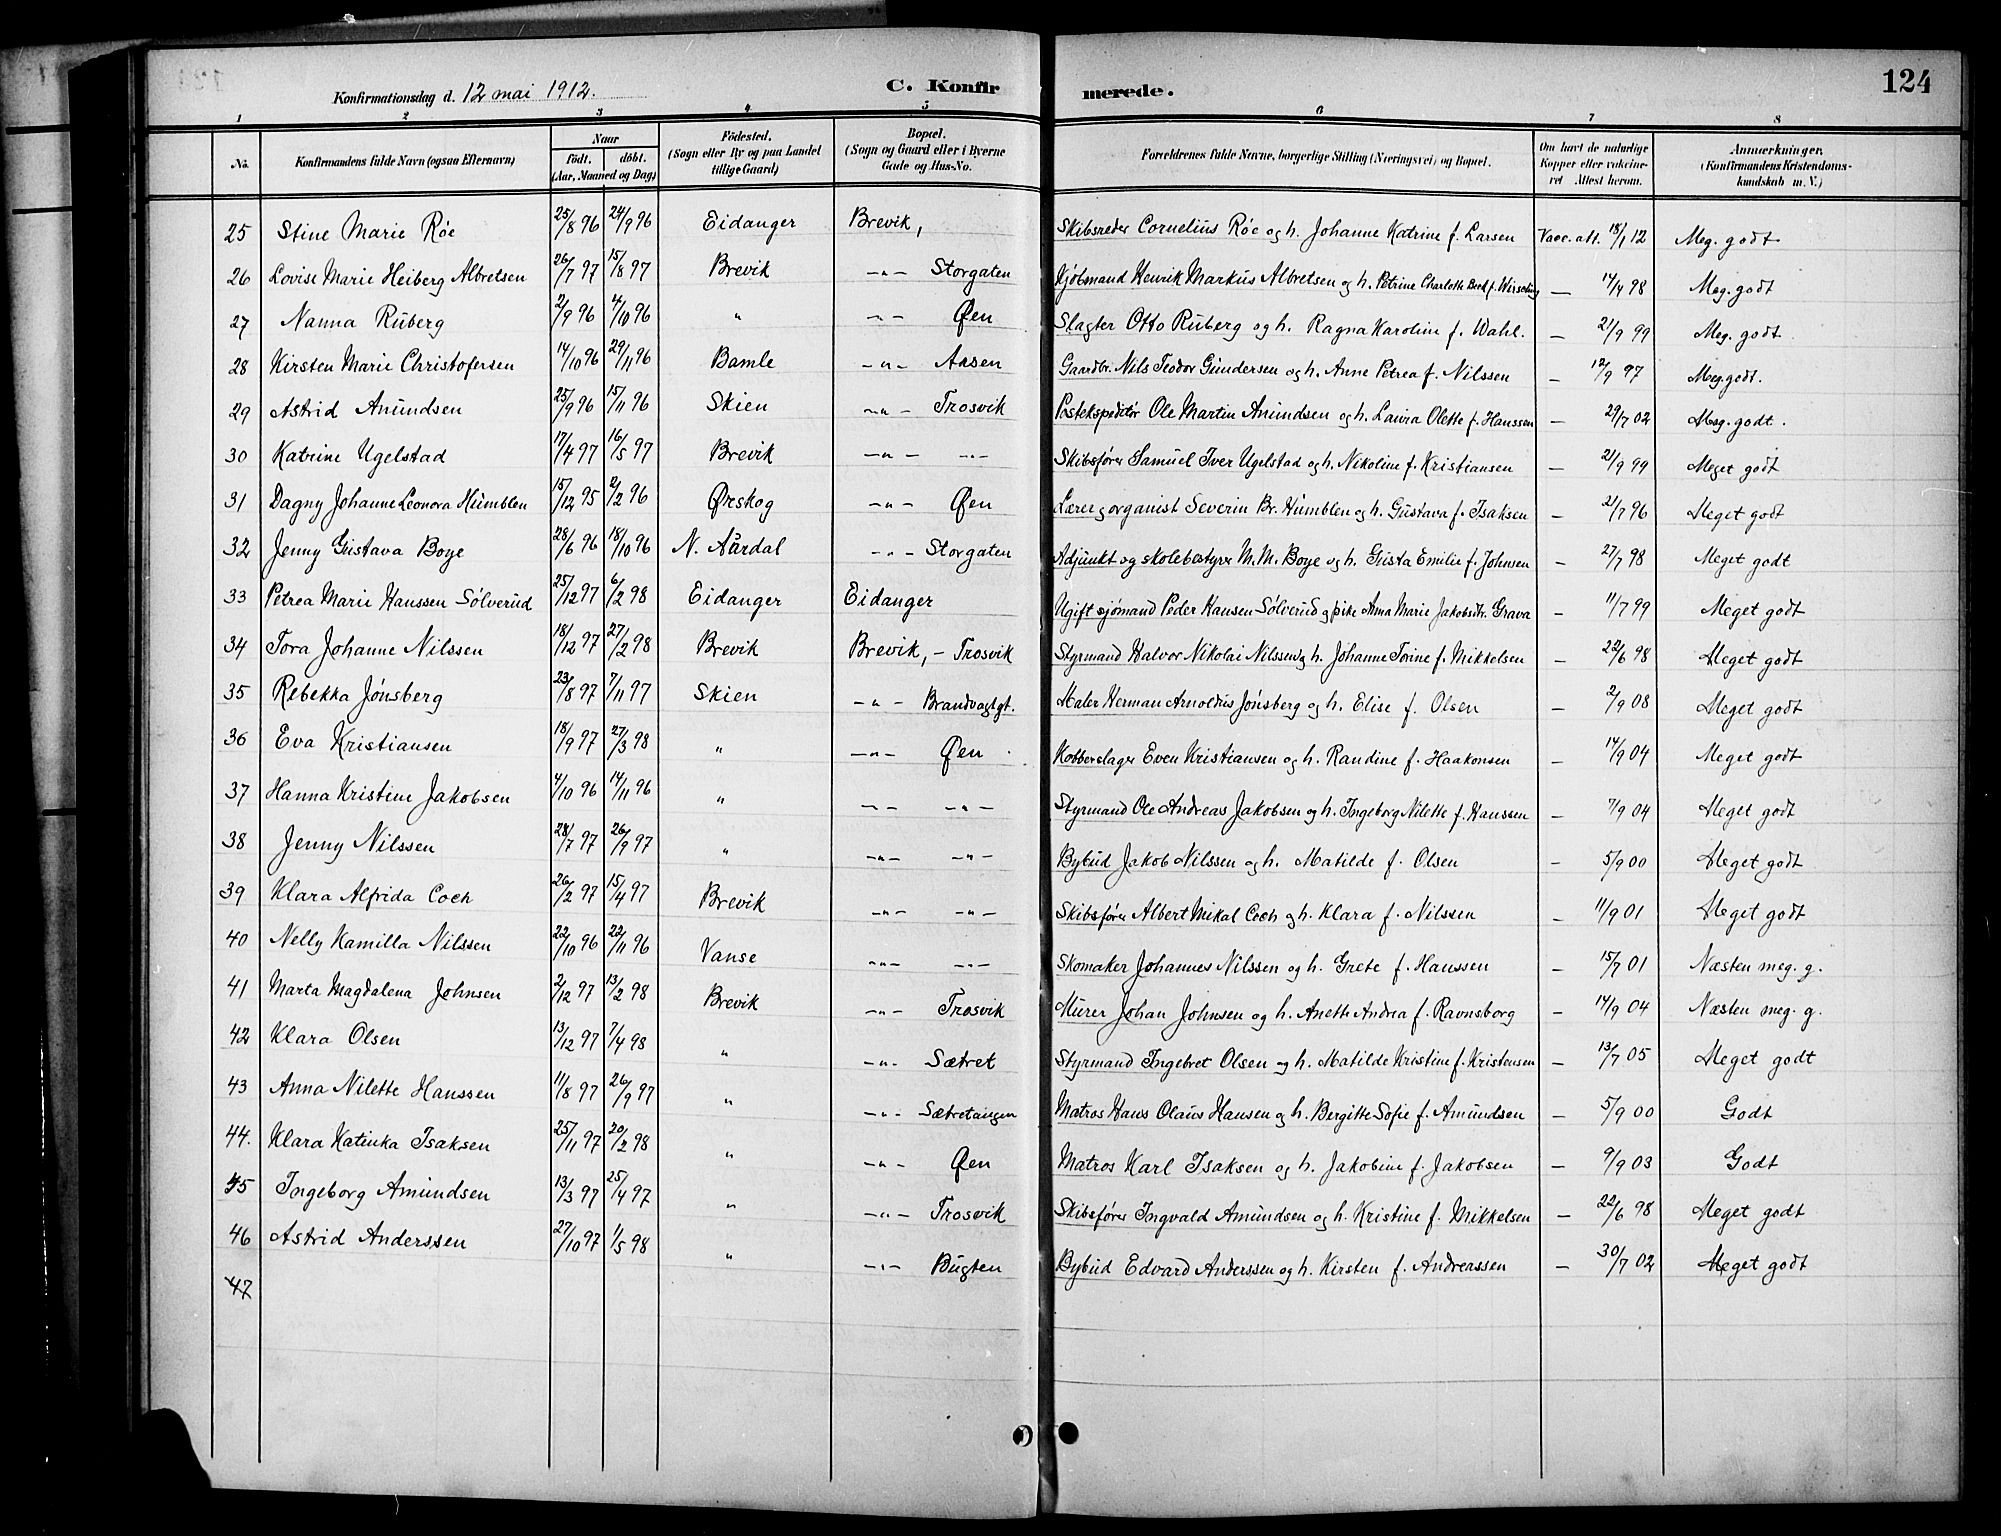 Konfirmationsdag d. 12 mai 1912. C. Konfir merede. 124
1 2 3 4 5 6 7 8
No. Konfirmandens fulde Navn (ogsaa Efternavn) Naar født. døbt. (Aar, Maaned og Dag) Fødested. (Sogn eller By og paa Landet tillige Gaard) Bopæl. (Sogn og Gaard eller i Byerne Gade og Hus-No. Forældrenes fulde Navne, borgerlige Stilling (Næringsvei) og Bopæl. Om havt de naturlige Kopper eller vaccineret Attest herom. Anmærkninger. (Konfirmandens Kristendomskundskab m. V.)
25 Stine Marie Röe 25/8 96 24/9 96 Eidanger Brevik, Skibsreder Cornelius Röe og h. Johanne Katrine f. Larsen Vacc. att. 18/1 12 Meg. godt
26 Lovise Marie Heiberg Albretsen 26/7 97 15/8 97 Brevik -"- Storgaten Kjöbmand Henrik Markus Albretsen og h. Petrine Charlotte f. — 14/4 98 Meg. godt
27 Nanna Ruberg 2/9 96 4/10 96 " -"- Øen Slagter Otto Ruberg og h. Ragna Karoline f. Wahl. — 21/9 99 Meg. godt
28 Kirsten Marie Christofersen 14/10 96 29/11 96 Bamle -"- Aasen Gaardbr. Nils Teodor Gundersen og h. Anne Petrea f. Nilssen — 12/9 97 Meg. godt.
29 Astrid Amundsen 25/9 96 15/11 96 Skien -"- Trosvik Postekspeditör Ole Martin Amundsen og h. Laura Olette f. Hanssen — 29/7 02 Meg. godt.
30 Katrine Ugelstad 17/4 97 16/5 97 Brevik -"- -"- Skibsförer Samuel Iver Ugelstad og h. Nikoline f. Kristiansen — 21/9 99 Meget godt
31 Dagny Johanne Leonora Humblen 15/12 95 2/2 96 Ørskog -"- Øen Lærer og organist Severin Br. Humblen og h. Gustava f. Isaksen — 21/7 96 Meget godt
32 Jenny Gustava Boye 28/6 96 18/10 96 N. Aardal -"- Storgaten Adjunkt og skolebestyrer M. M. Boye og h. Gusta Emilie f. Johnsen — 27/7 98 Meget godt
33 Petrea Marie Hanssen Sölverud 25/12 97 6/2 98 Eidanger Eidanger Ugift sjömand Peder Hansen Sölverud og pike Anna Marie Jakobsdtr. Grava — 11/7 99 Meget godt
34 Tora Johanne Nilssen 18/12 97 27/2 98 Brevik Brevik, - Trosvik Styrmand Halvor Nikolai Nilssen og h. Johanne Torine f. Mikkelsen — 22/6 98 Meget godt
35 Rebekka Jönsberg 23/8 97 7/11 97 Skien -"- Brandvagtgt. Maler Herman Arnoldus Jönsberg og h. Elise f. Olsen — 2/9 08 Meget godt
36 Eva Kristiansen 18/9 97 27/3 98 " -"- Øen Kobberslager Even Kristiansen og h. Randine f. Haakonsen — 14/9 04 Meget godt
37 Hanna Kristine Jakobsen 4/10 96 14/11 96 " -"- -"- Styrmand Ole Andreas Jakobsen og h. Ingeborg Nilette f. Hanssen — 7/9 04 Meget godt
38 Jenny Nilssen 28/7 97 26/9 97 " -"- -"- Bybud Jakob Nilssen og h. Matilde f. Olsen — 5/9 00 Meget godt
39 Klara Alfrida Coch 26/2 97 15/4 97 Brevik -"- -"- Skibsförer Albert Mikal Coch og h. Klara f. Nilssen — 11/9 01 Meget godt
40 Nelly Kamilla Nilssen 22/10 96 22/11 96 Vanse -"- -"- Skomaker Johannes Nilssen og h. Grete f. Hanssen — 15/7 01 Næsten meg. g.
41 Marta Magdalena Johnsen 2/12 97 13/2 98 Brevik -"- Trosvik Murer Johan Johnsen og h. Anette Andrea f. Ravnsborg — 14/9 04 Næsten meg. g.
42 Klara Olsen 13/12 97 7/4 98 " -"- Sætret Styrmand Ingebret Olsen og h. Matilde Kristine f. Kristensen — 13/7 05 Meget godt
43 Anna Nilette Hanssen 11/8 97 26/9 97 " -"- Sætretangen Matros Hans Olaus Hansen og h. Bergitte Sofie f. Amundsen — 5/9 00 Godt
44. Klara Katinka Isaksen 25/11 97 20/2 98 " -"- Øen Matros Karl Isaksen og h. Jakobine f. Jakobsen — 9/9 03 Godt
45 Ingeborg Amundsen 13/3 97 25/4 97 " -"- Trosvik Skibsförer Ingvald Amundsen og h. Kristine f. Mikkelsen — 22/6 98 Meget godt
46 Astrid Anderssen 27/10 97 1/5 98 " -"- Bugten Bybud Edvard Anderssen og h. Kirsten f. Andreassen — 30/7 02 Meget godt
47